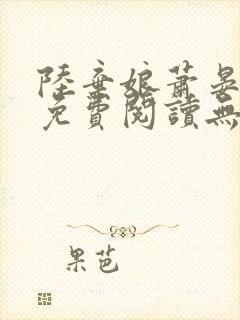 陸棄娘蕭晏
免費閱讀無
果芭